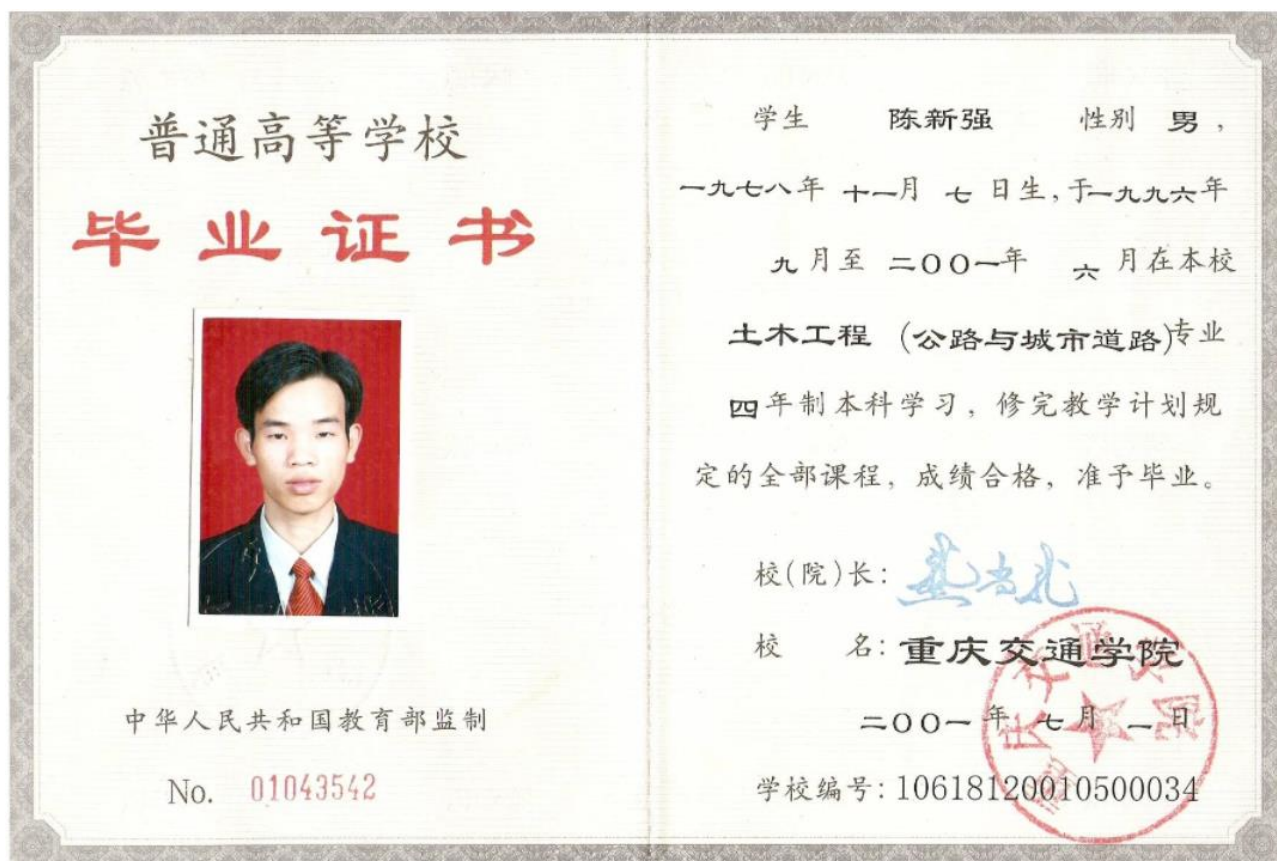 普通高等学校
毕业证书
中华人民共和国教育部监制
No. 01043542
学生 陈新强 性别 男，
一九七八年 十一月 七 日生，于一九九六年
九月至 二〇〇一年 六 月在本校
土木工程 (公路与城市道路)专业
四年制本科学习，修完教学计划规
定的全部课程，成绩合格，准予毕业。
校(院)长：
校 名：重庆交通学院
二〇〇一年 七月 一日
学校编号：10618120010500034